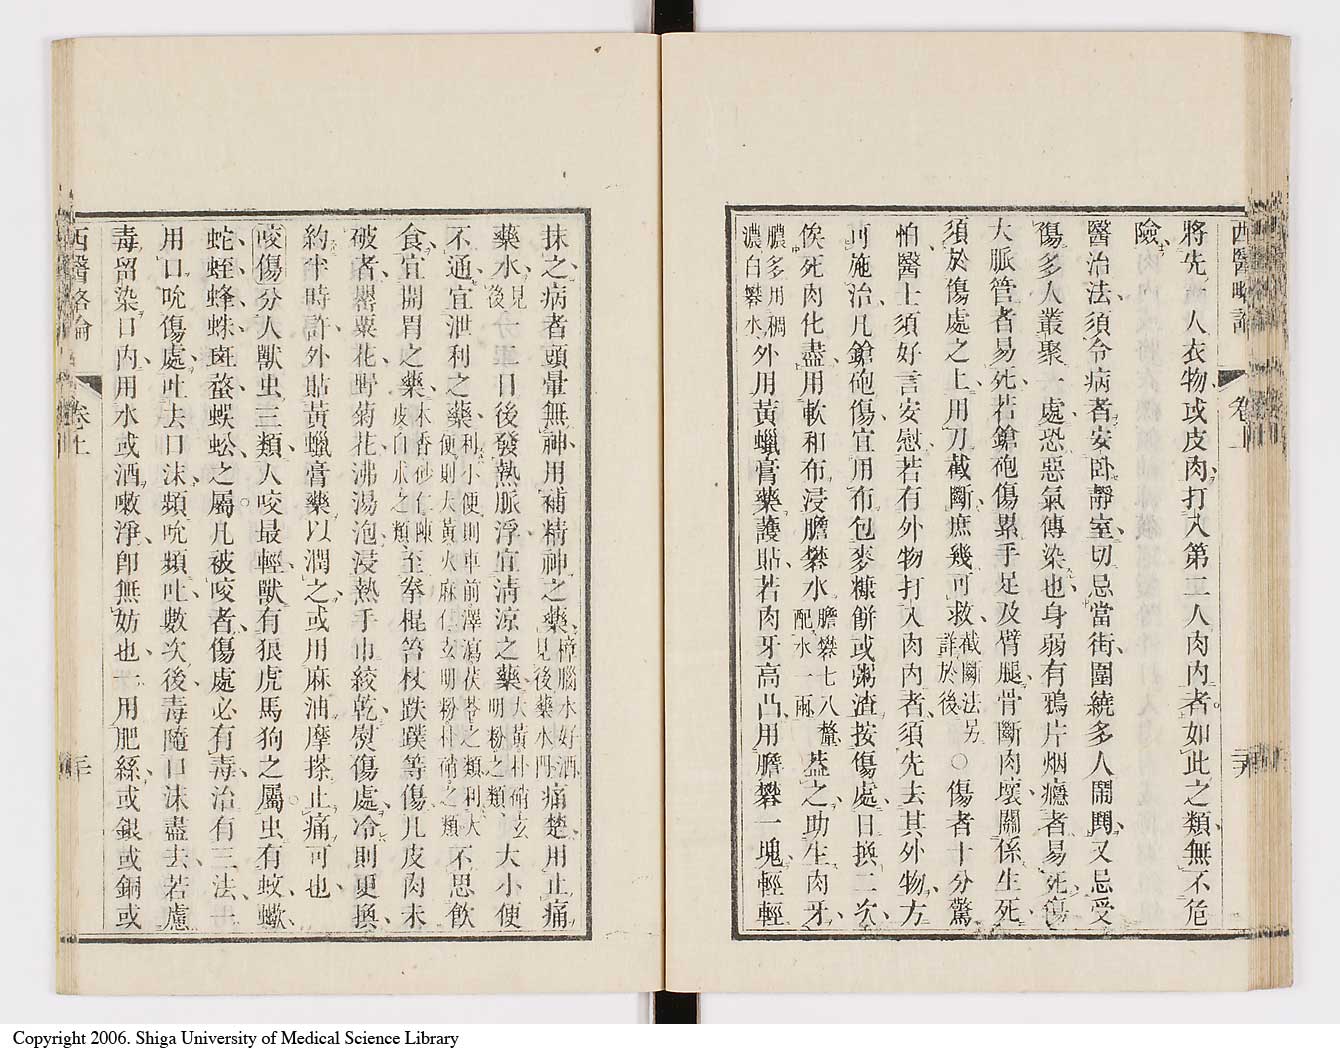 西醫略論
卷上
將先一人衣物或皮肉打入第二人肉內者如此之類無不危
險
醫治法須令病者安臥靜室切忌當街圍繞多人鬧鬨又忌受
傷多人叢聚一處恐惡氣傳染也身弱有鴉片烟癮者易死傷
大脈管者易死若鎗砲傷累手足及臂腿骨斷肉壞關係生死
須於傷處之上用刀截斷庶幾可救截斷法另詳於後○傷者十分驚
怕醫士須好言安慰若有外物打入肉內者須先去其外物方
可施治凡鎗砲傷宜用布包麥糠餅或粥渣按傷處日換二次
俟死肉化盡用軟和布浸膽礬水膽礬七八釐配水一兩蓋之助生肉牙
膿多用稠濃白礬水外用黃蠟膏藥護貼若肉牙高凸用膽礬一塊輕輕
抹之病者頭暈無神用補精神之藥樟腦水好酒見後藥水門痛楚用止痛
藥水見後日後發熱脈浮宜清涼之藥大黃朴硝玄明粉之類大小便
不通宜泄利之藥利小便則車前澤瀉茯苓之類利大便則大黃火麻仁玄明粉朴硝之類不思飲
食宜開胃之藥木香砂仁陳皮白朮之類至拳棍笞杖跌蹼等傷凡皮肉未
破者罌粟花野菊花沸湯泡浸熱手巾絞乾熨傷處冷則更換
約半時許外貼黃蠟膏藥以潤之或用麻油摩搽止痛可也
咬傷分人獸虫三類人咬最輕獸有狼虎馬狗之屬虫有蚊蠍
蛇蛭蜂蛛斑蝥蜈蚣之屬凡被咬者傷處必有毒治有三法一
用口吮傷處吐去口沫頻吮頻吐數次後毒隨口沫盡去若慮
毒留染口內用水或酒嗽淨卽無妨也一用肥絲或銀或銅或
西醫略論
卷上